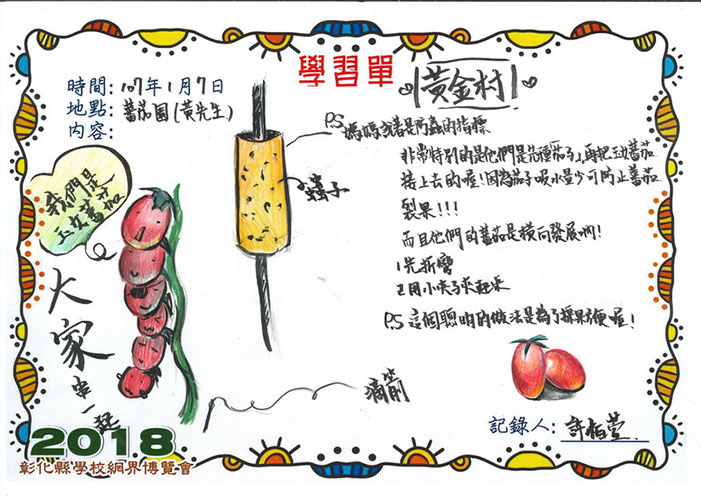 學習單
黃金村
時間:107年1月7日
地點:蕃茄園(黃先生)
內容:
我們是
玉女蕃茄
大家串一起
蟲子
滴箭
P.S 媽媽或著是防蟲的指標
非常特別的是他們是先種茄子,再把玉女蕃茄
接上去的喔!因為茄子吸水量少可防止蕃茄
裂果!!!
而且他們的蕃茄是橫向發展喲!
1先折彎
2用小夾子夾起來
P.S 這個聰明的做法是為了採果方便喔!
記錄人:許栢萱
2018
彰化縣學校網界博覽會